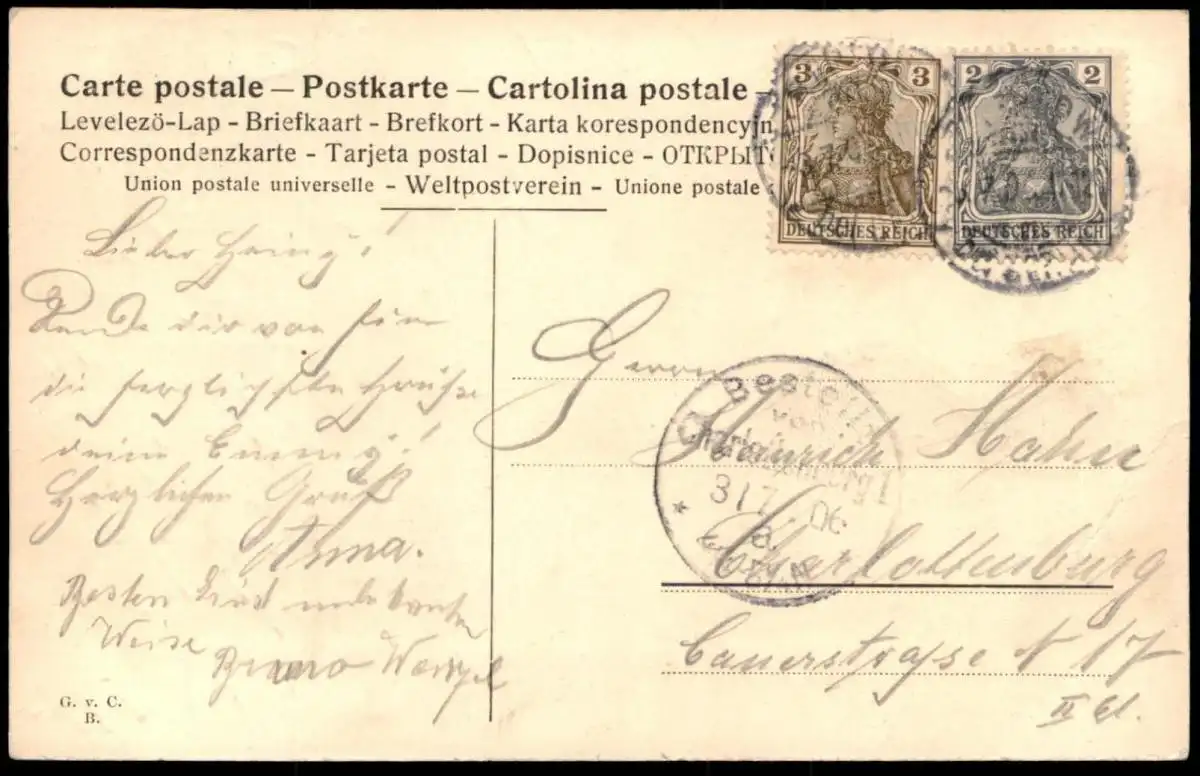 Carte postale – Postkarte – Cartolina postale –
Levelezö-Lap - Briefkaart - Brefkort - Karta korespondencyjn
Correspondenzkarte - Tarjeta postal - Dopisnice - ОТКРЫТ
Union postale universelle - Weltpostverein - Unione postale
3 3
DEUTSCHES REICH
2 2
DEUTSCHES REICH
Lieber
dir von
die herzlichsten Grüße
deine
Herzlichen Gruß
Anna.
Besten Gruß unbekannter
Weise Bruno
G. v. C.
B.
Herrn
Heinrich Hahn
Charlottenburg
Cauerstrasse N 17
II
Bestellt
vom
Charlottenburg 1
31 7 06